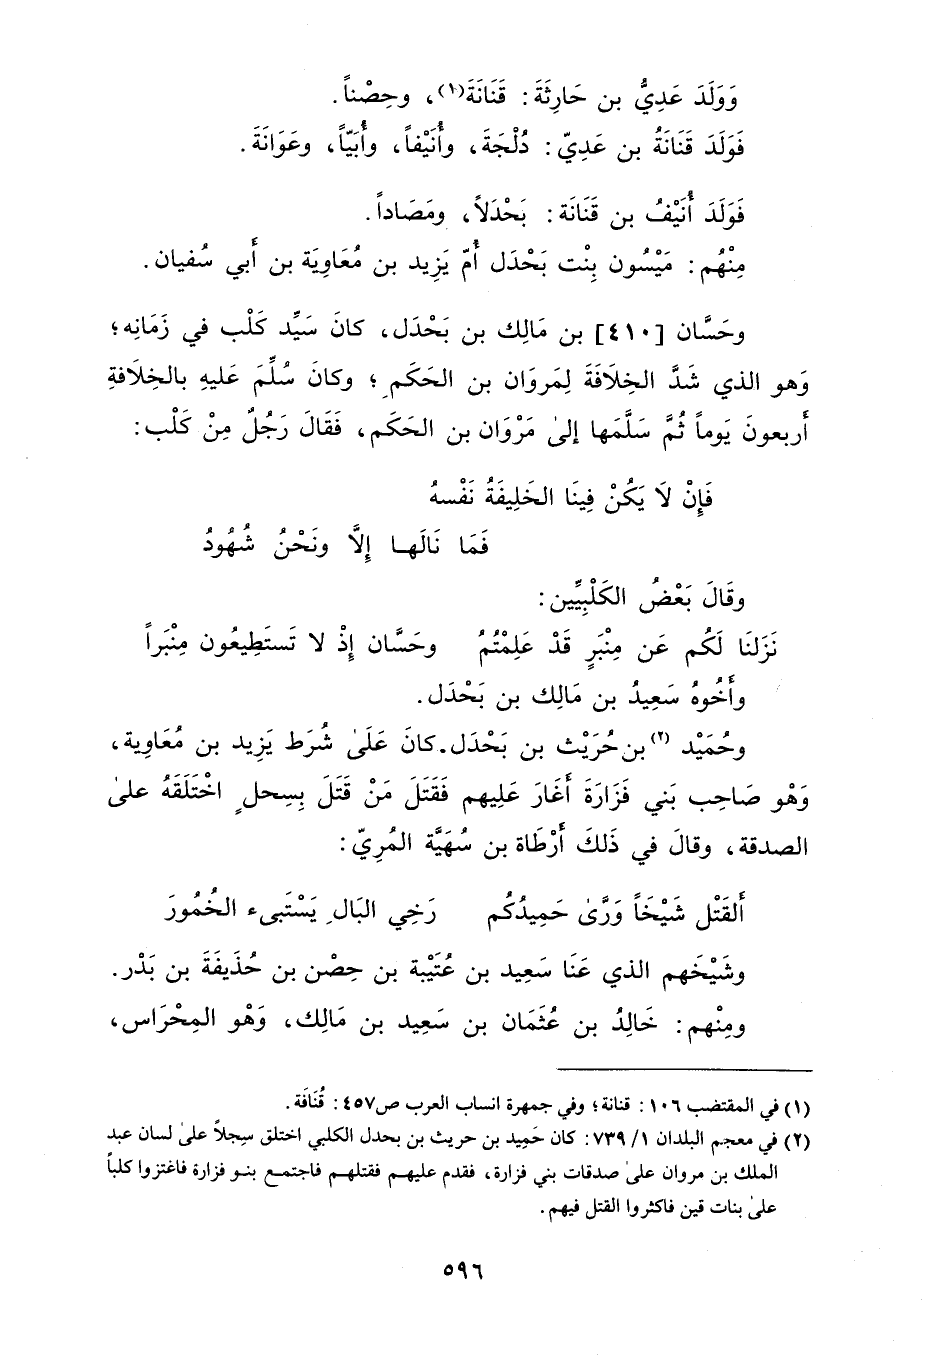 وَوَلَدَ عَدِيُّ بن حَارِثَةَ: قَنَانَةَ(١)، وحِصْناً.
فَوَلَدَ قَنَانَةُ بن عَدِيّ: دُلْجَةَ، وأُنَيْفاً، وأُبَيّاً، وعَوَانَةَ.
فَولَدَ أُنَيْفُ بن قَنَانَة: بَحْدَلاً، ومَصَاداً.
مِنْهُم: مَيْسُون بِنْت بَحْدَل أُمّ يَزِيد بن مُعَاوِيَة بن أَبي سُفيان.
وحَسَّان [٤١٠] بن مَالِك بن بَحْدَل، كانَ سَيِّد كَلْب في زَمَانِه؛
وَهو الذي شَدَّ الخِلَافَةَ لِمَروَان بن الحَكَمِ؛ وكانَ سُلِّمَ عَليهِ بالخِلَافةِ
أَربعونَ يَوماً ثُمَّ سَلَّمَها إلىٰ مَرْوَان بن الحَكَم، فَقَالَ رَجُلٌ مِنْ كَلْب:
فَإِنْ لَا يَكُنْ فِينَا الخَلِيفَةُ نَفْسهُ
فَمَا نَالَهـا إِلَّا ونَحْنُ شُهُودُ
وقَالَ بَعْضُ الكَلْبِيِّين:
نَزَلنَا لَكُم عَن مِنْبَرٍ قَدْ عَلِمْتُمُ وحَسَّان إِذْ لا تَستَطِيعُون مِنْبَراً
وأَخُوهُ سَعِيدُ بن مَالِك بن بَحْدَل.
وحُمَيْد (٢) بن حُرَيْث بن بَحْدَل. كانَ عَلَىٰ شُرَط يَزِيد بن مُعَاوِية،
وَهْو صَاحِب بَني فَزَارَةَ أَغَارَ عَلِيهم فَقَتَلَ مَنْ قَتَلَ بِسِحلٍ اخْتَلَقَهُ علىٰ
الصدقة، وقالَ في ذَلكَ أَرْطَاة بن سُهَيَّة المُرِيّ:
أَلقَتْل شَيْخَاً وَرَّىٰ حَمِيدُكُم رَخِي البَالِ يَسْتَبىء الخُمُورَ
وشَيْخَهم الذي عَنَا سَعِيد بن عُتَيْبة بن حِصْن بن حُذَيفَةَ بن بَدْر.
ومِنْهم: خَالِدُ بن عُثَمَان بن سَعِيد بن مَالِك، وَهْو المِحْرَاس،
(١) في المقتضب ١٠٦: قنانة؛ وفي جمهرة انساب العرب ص٤٥٧: قُنَافَة.
(٢) في معجم البلدان ١/ ٧٣٩: كان حَمِيد بن حريث بن بحدل الكلبي اختلق سِجلاً علىٰ لسان عبد
الملك بن مروان علىٰ صدقات بني فزارة، فقدم عليهـم فقتلهـم فاجتمـع بنـو فزارة فاغتزوا كلباً
علىٰ بنات قين فاكثروا القتل فيهم.
٥٩٦